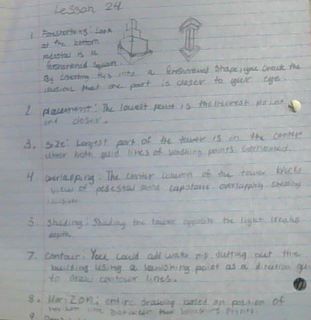 Lesson 24
1. Foreshortening: Look
at the bottom
pedestal is a
foreshortened square.
By this into a foreshortened shape you create the
illusion that one part is closer to your eye.
2. placement: The lowest point is the nearest point
and closer.
3. Size: Largest part of the tower is in the center
where both guid lines of vanishing points
4. overlapping: The center column of the tower blocks
view of pedestal and capstone overlapping creating
5. Shading: Shading the tower opposite the light creates
depth.
7. Contour: You could add wake rip jutting out the
building using a vanishing point as a direction
to draw contour lines.
8. Horizon: entire drawing based on position of
line between two vanishing points.
9.